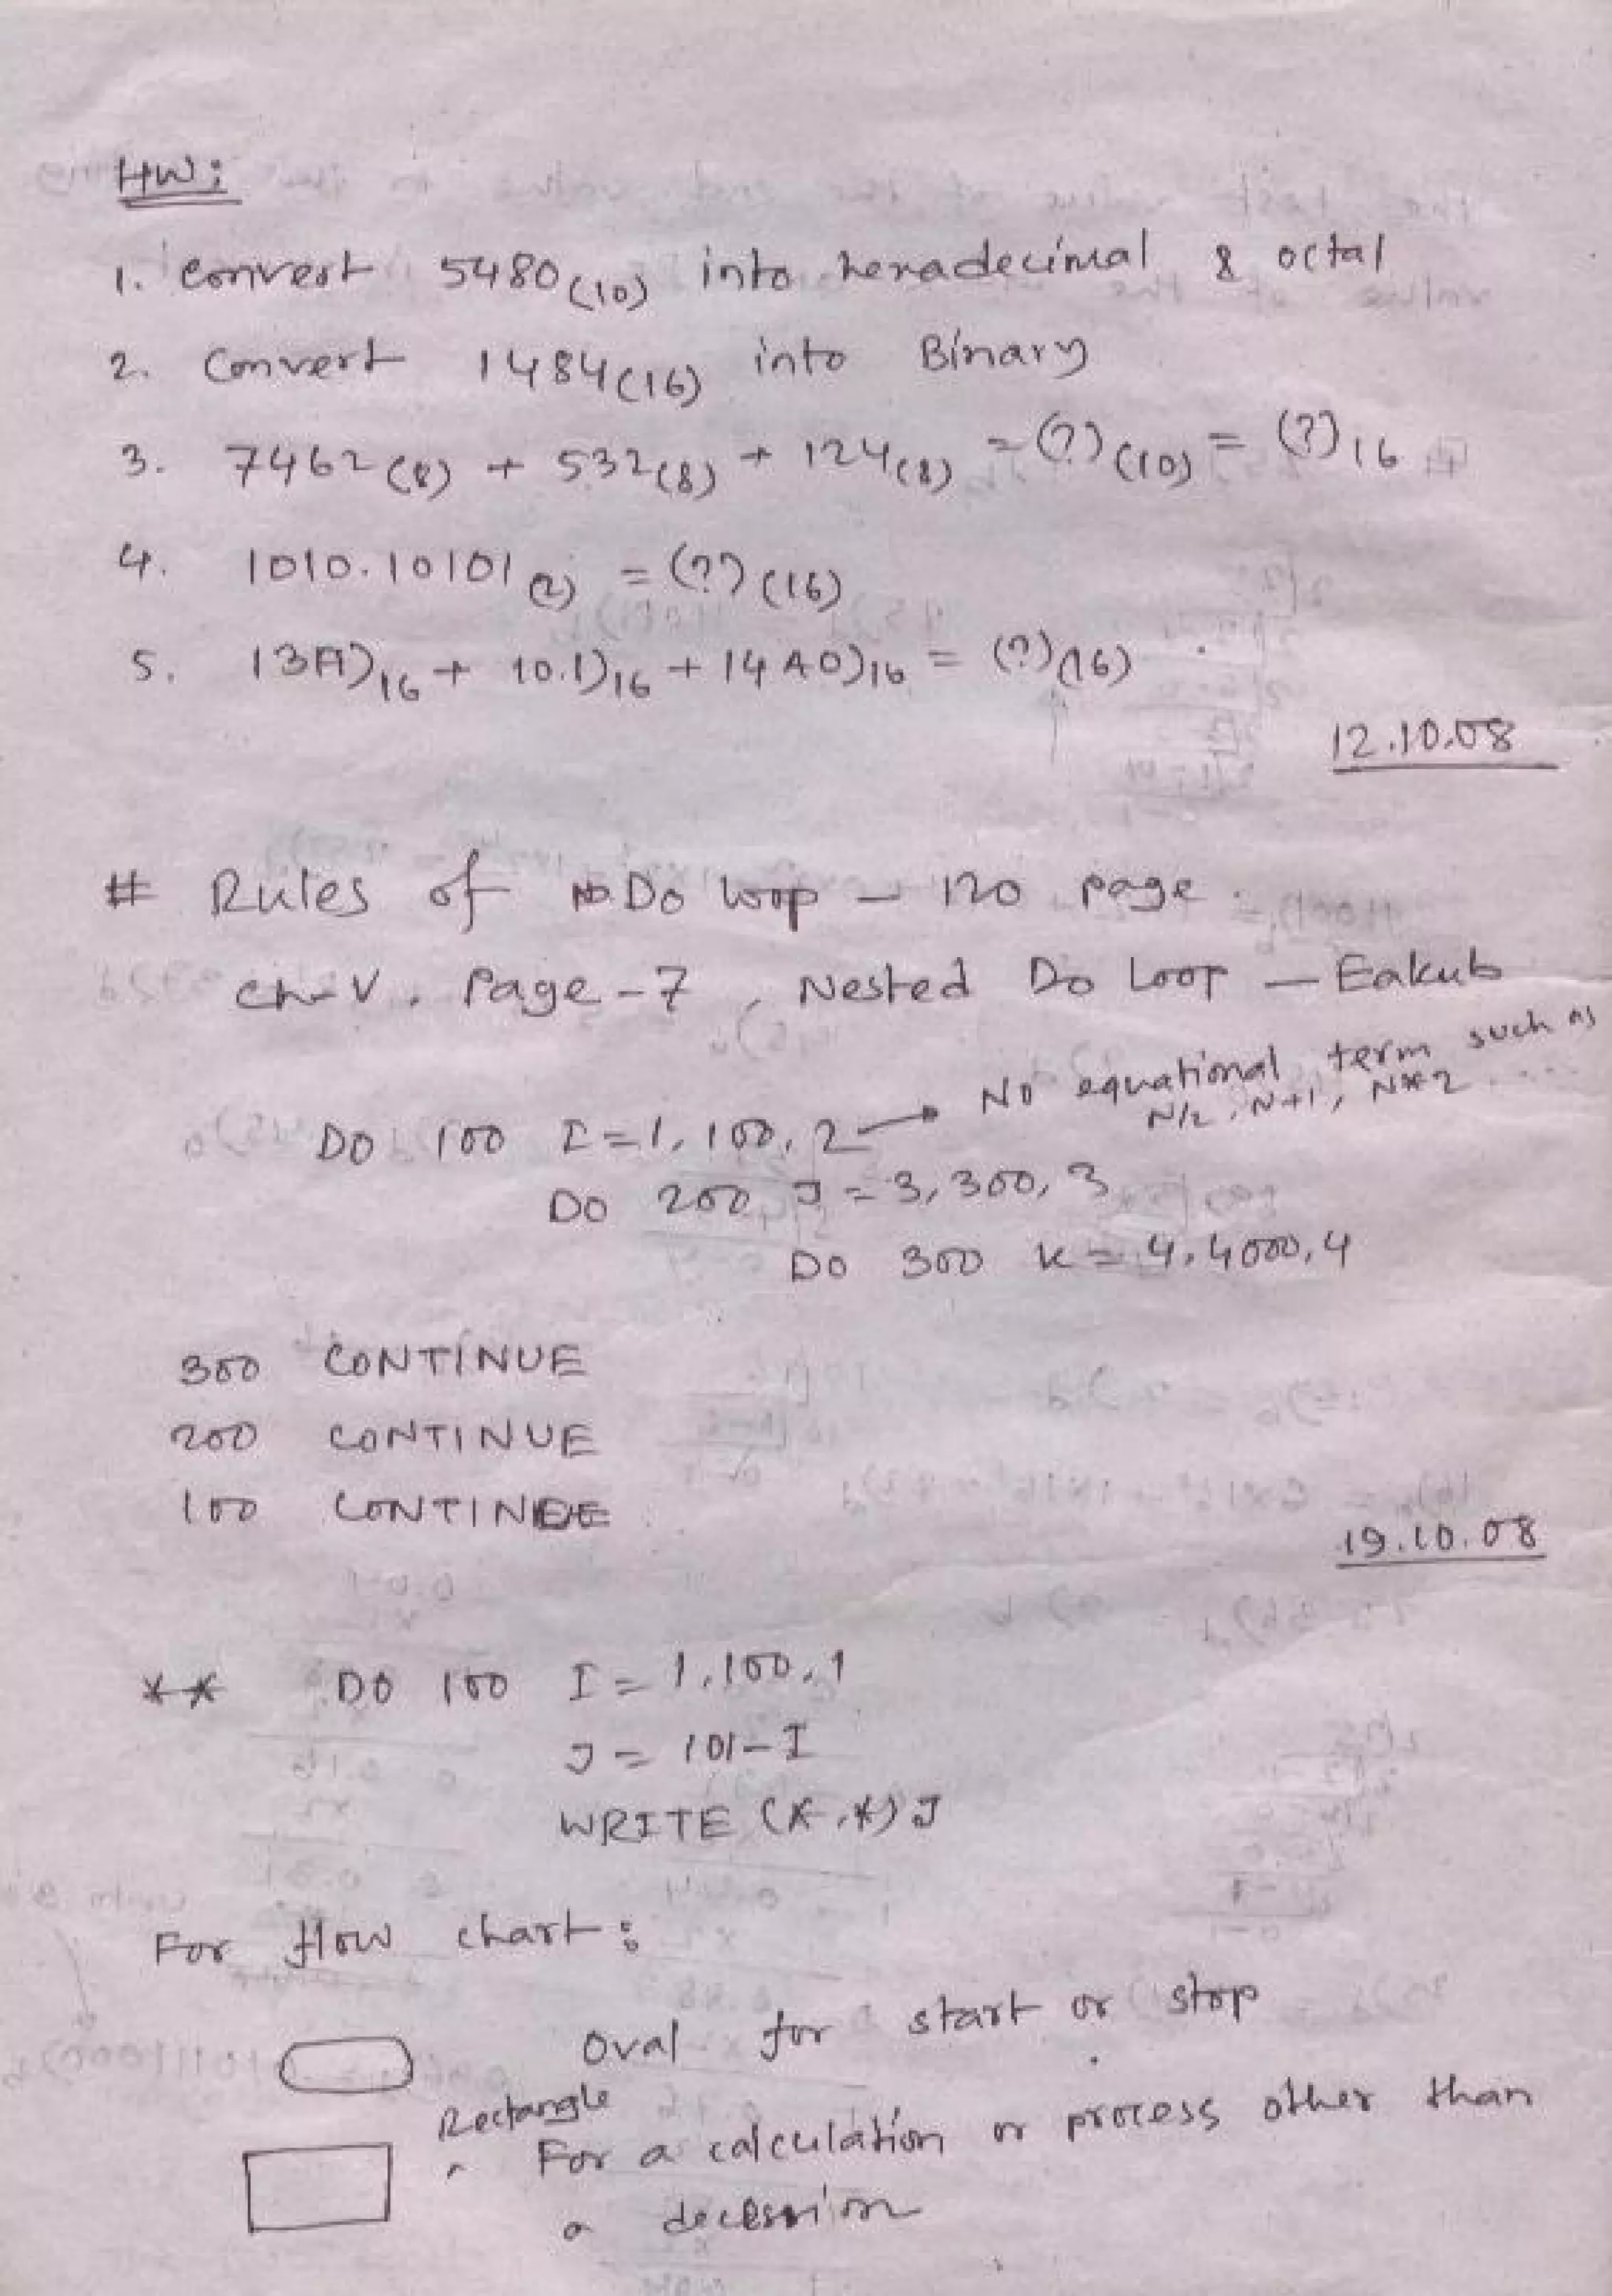 HW:
1. convert 5480(10) into hexadecimal & octal
2. Convert 1484(16) into Binary
3. 7462(8) + 532(8) + 124(8) = (?)(10) = (?)16
4. 1010.10101(2) = (?)(16)
5. 13A)16 + 10.1)16 + 14A0)16 = (?)(16)
12.10.08
# Rules of Do loop - 120 page.
ch-V. Page-7, Nested Do Loop - Eakub
DO 100 I=1,100,2 → No equational term such as
N/2, N+1, N*2 ....
DO 200 J=3,300,3
DO 300 K=4,4000,4
300 CONTINUE
200 CONTINUE
100 CONTINUE
19.10.08
** DO 100 I=1,100,1
J=101-I
WRITE (*,*) J
For flow chart:
Oval for start or stop
Rectangle
For a calculation or process other than
a decession